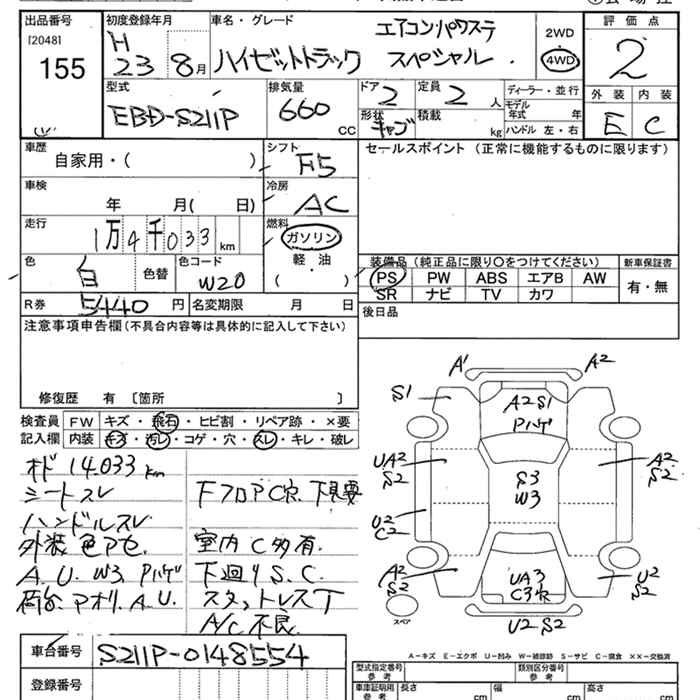 出品番号
[2048]
155
初度登録年月
H
23 8月
車名・グレード
ハイゼットトラック
エアコンパワステ
スペシャル
2WD
4WD
評価点
2
型式
EBD-S211P
排気量
660
CC
ドア
2
定員
2
人
形状
キャブ
積載
kg
ディーラー・並行
モデル年式 年
ハンドル 左・右
外装
内装
E
C
車歴
自家用・( )
シフト
F5
セールスポイント (正常に機能するものに限ります)
車検
年 月( 日)
冷房
AC
走行
1万4千033km
燃料
ガソリン
軽・油
( )
色
白
色替
色コード
W20
装備品 (純正品に限り○をつけてください)
PS PW ABS エアB AW
SR ナビ TV カワ
新車保証書
有・無
R券
5440円
名変期限 月 日
後日品
注意事項申告欄 (不具合内容等は具体的に記入して下さい)
修復歴 有 〔箇所 〕
検査員 FW キズ・飛石・ヒビ割・リペア跡・×要
記入欄 内装 キズ・汚レ・コゲ・穴・スレ・キレ・破レ
14.033km
シートスレ
下フロア C穴 下見要
ハンドルスレ
外装 色アセ.
室内 C多有.
A.U. W3 Pハゲ
下廻り S.C.
アオリ.A.U.
スタットレスT
A/C不良
車台番号
S211P-0148554
登録番号
A'
A2
S1
A2 S1
Pハゲ
UA2
S2
S3
W3
A2
S2
U2
C2
A2
S2
UA3
C3穴
U2
S2
スペア
U2 S2
A-キズ E-エクボ U-凹み W-補跡 S-サビ C-腐食 ××-交換済
型式指定番号
参考
類別区分番号
参考
車庫証明用
参考
長さ
cm
幅
cm
高さ
cm